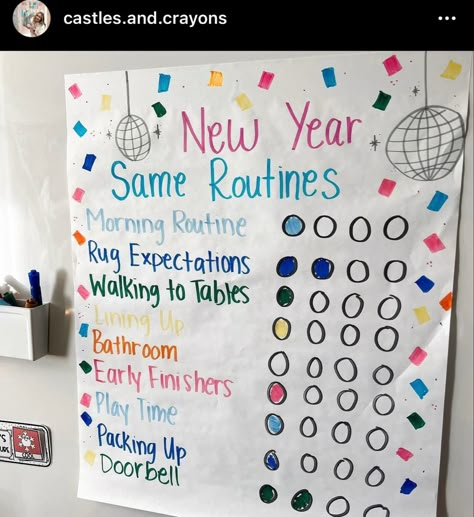 castles.and.crayons
New Year
Same Routines
Morning Routine
Rug Expectations
Walking to Tables
Lining Up
Bathroom
Early Finishers
Play Time
Packing Up
Doorbell